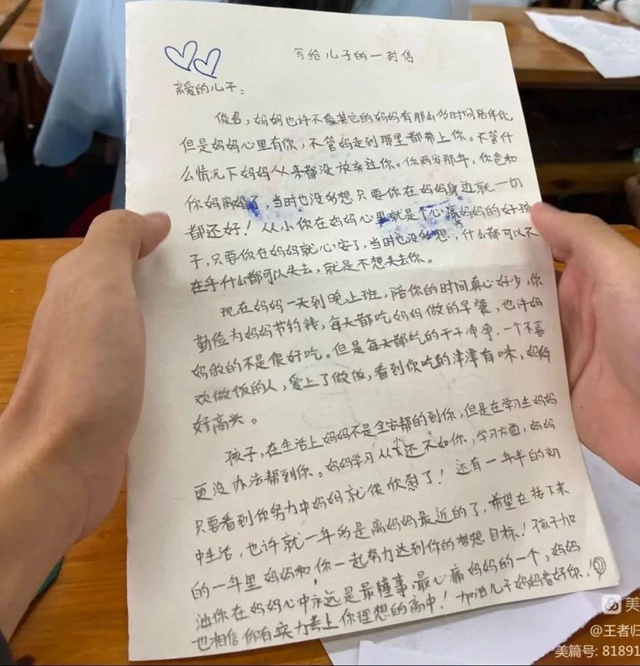 写给儿子的一封信
亲爱的儿子：
俊君，妈妈也许不像其它的妈妈有那么多时间陪伴你
但是妈妈心里有你，不管妈走到哪里都带上你。不管什
么情况下妈妈从来都没放弃过你。你两岁那年，你爸和
你妈离婚了，当时也没多想只要你在妈妈身边就一切
都还好！从小你在妈妈心里就是个心疼妈妈的好孩
子，只要你在妈妈就心安了，当时也没多想，什么都可以不
在乎什么都可以失去，就是不想失去你。
现在妈妈一天到晚上班，陪你的时间真心好少，你
勤俭为妈妈节约钱，每天都吃妈妈做的早餐，也许妈
妈做的不是很好吃。但是每天都吃的干干净净，一个不喜
欢做饭的人，爱上了做饭，看到你吃的津津有味，妈妈
好高兴。
孩子，在生活上妈妈不是全安帮的到你，但是在学习上妈妈
更没办法帮到你。妈妈学习从尘还不如你，学习方面，妈妈
只要看到你努力中妈妈就很欣慰了！还有一年半的初
中生活，也许就一年多是离妈妈最近的了，希望在接下来
的一年里妈妈和你一起努力达到你的梦想目标！孩子加
油你在妈妈心中永远是最懂事最心痛妈妈的一个，妈妈
也相信你有实力考上你理想的高中！加油儿子妈妈看好你！
美
@王者归
美篇号: 81891